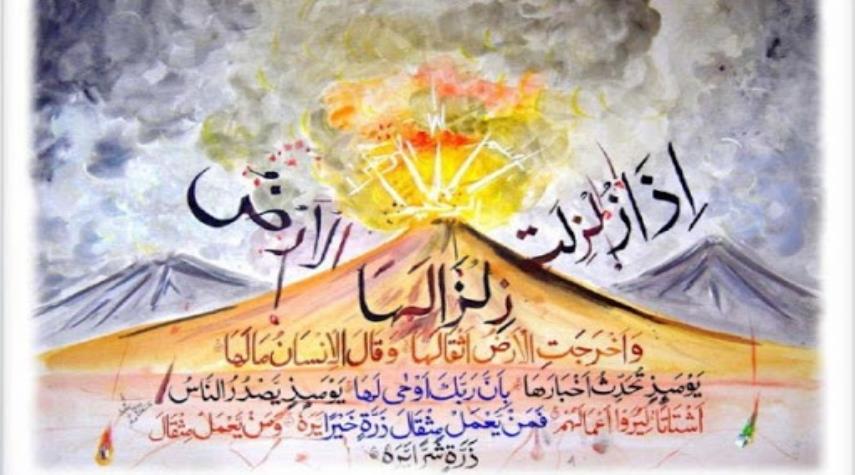 إِذَا زُلْزِلَتِ الْأَرْضُ
زِلْزَالَهَا
وَأَخْرَجَتِ الْأَرْضُ أَثْقَالَهَا وَقَالَ الْإِنْسَانُ مَا لَهَا
يَوْمَئِذٍ تُحَدِّثُ أَخْبَارَهَا بِأَنَّ رَبَّكَ أَوْحَى لَهَا يَوْمَئِذٍ يَصْدُرُ النَّاسُ
أَشْتَاتًا لِيُرَوْا أَعْمَالَهُمْ فَمَنْ يَعْمَلْ مِثْقَالَ ذَرَّةٍ خَيْرًا يَرَهُ وَمَنْ يَعْمَلْ مِثْقَالَ
ذَرَّةٍ شَرًّا يَرَهُ